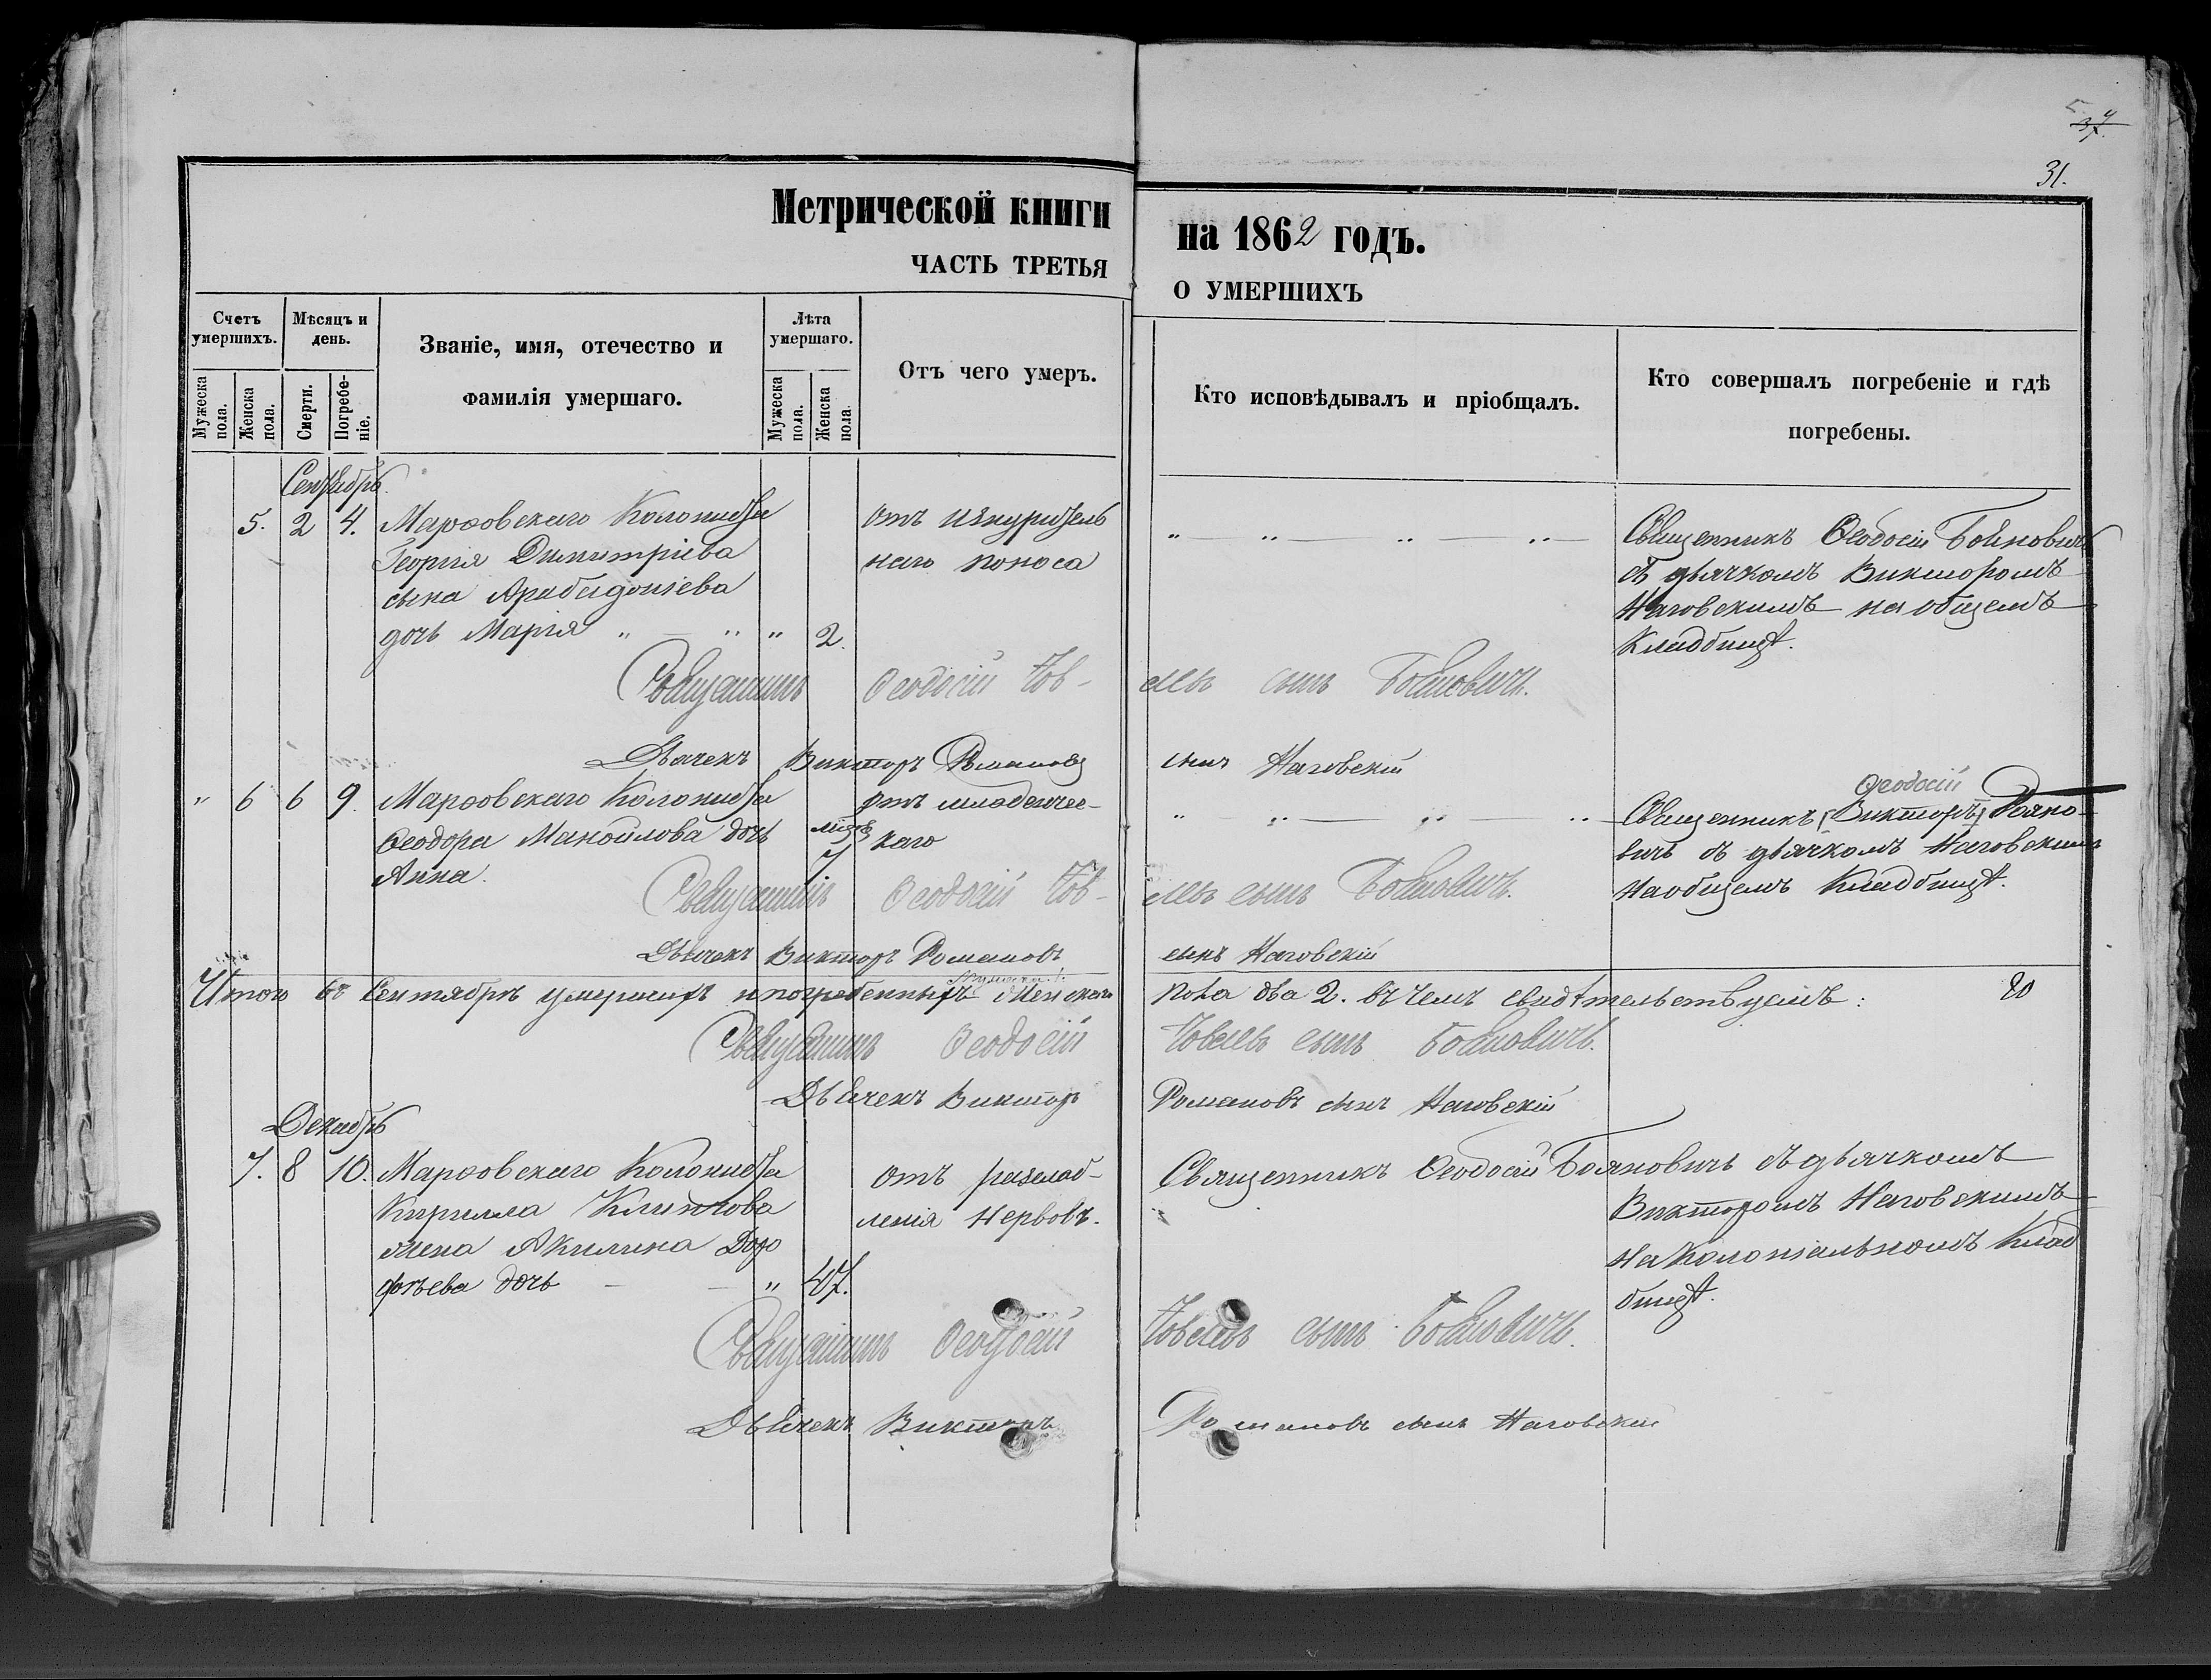 31.
Метрической книги на 1862 годъ.
ЧАСТЬ ТРЕТЬЯ О УМЕРШИХЪ
Счетъ умершихъ.
Мужеска пола.
Женска пола.
Мѣсяцъ и день.
Смерти.
Погребеніе.
Званіе, имя, отечество и фамилія умершаго.
Лѣта умершаго.
Мужеска пола.
Женска пола.
Отъ чего умеръ.
Кто исповѣдывалъ и пріобщалъ.
Кто совершалъ погребеніе и гдѣ погребены.
Сентябрь.
5. 2 4. Марѳовскаго Колониста
Георгія Димитріева
сына
дочь Марія " " " 2.
отъ изнурительнаго поноса
Священникъ Ѳеодосій Бояновичъ
съ дьячкомъ Викторомъ
Наговскимъ на общемъ
Кладбищѣ.
Священникъ Ѳеодосій Іовлевъ сынъ Бояновичъ.
Дьячекъ Викторъ Романовъ сынъ Наговскій
" 6 6 9. Марѳовскаго Колониста
Ѳеодора Манойлова дочь
Анна.
7
отъ младенческаго
Ѳеодосій
Священникъ [Викторъ] Бояновичъ съ дьячкомъ Наговскимъ
на общемъ Кладбищѣ.
Священникъ Ѳеодосій Іовлевъ сынъ Бояновичъ.
Дьячекъ Викторъ Романовъ сынъ Наговскій
Итого въ Сентябрѣ умершихъ и погребенныхъ женскаго пола два 2. въ чемъ свидѣтельствуемъ:
Священникъ Ѳеодосій Іовлевъ сынъ Бояновичъ.
Дьячекъ Викторъ Романовъ сынъ Наговскій
Декабрь
7. 8 10. Марѳовскаго Колониста
Кирилла
жена Акилина Дорофѣева дочь " 47.
отъ разслабленія нервовъ.
Священникъ Ѳеодосій Бояновичъ съ дьячкомъ
Викторомъ Наговскимъ
на Колоніальномъ Кладбищѣ.
Священникъ Ѳеодосій Іовлевъ сынъ Бояновичъ.
Дьячекъ Викторъ Романовъ сынъ Наговскій